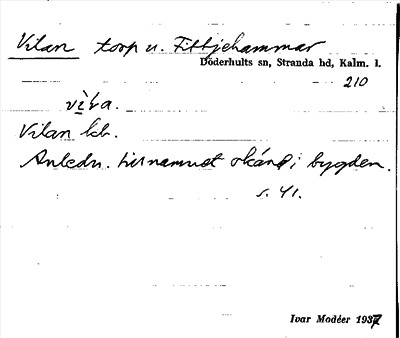 Vilan torp u. Fittjehammar
Döderhults sn, Stranda hd, Kalm. l.
210
vìla.
Vilan kb.
Anledn. till namnet okänd i bygden.
s. 41.
Ivar Modéer 1937